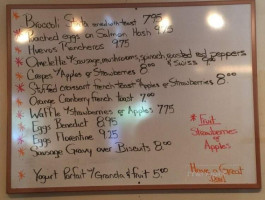 Broccoli 7.95
Poached eggs on Salmon Hash 9.75
Huevos Rancheros 9.25
Omelette w/ Sausage, mushrooms, spinach, roasted red peppers
& Swiss
Crepes w/ Apples & Strawberries 8.00
Stuffed croissant french toast w/ Apples & Strawberries 8.00
Orange Cranberry french toast
Waffle w/ Strawberries & Apples 7.75
Eggs Benedict 8.95
Eggs Florentine 9.25
Sausage Gravy over Biscuits 8.00
Yogurt Parfait w/ Granola & Fruit 5.00
* Fruit
Strawberries
&
Apples
Have a Great